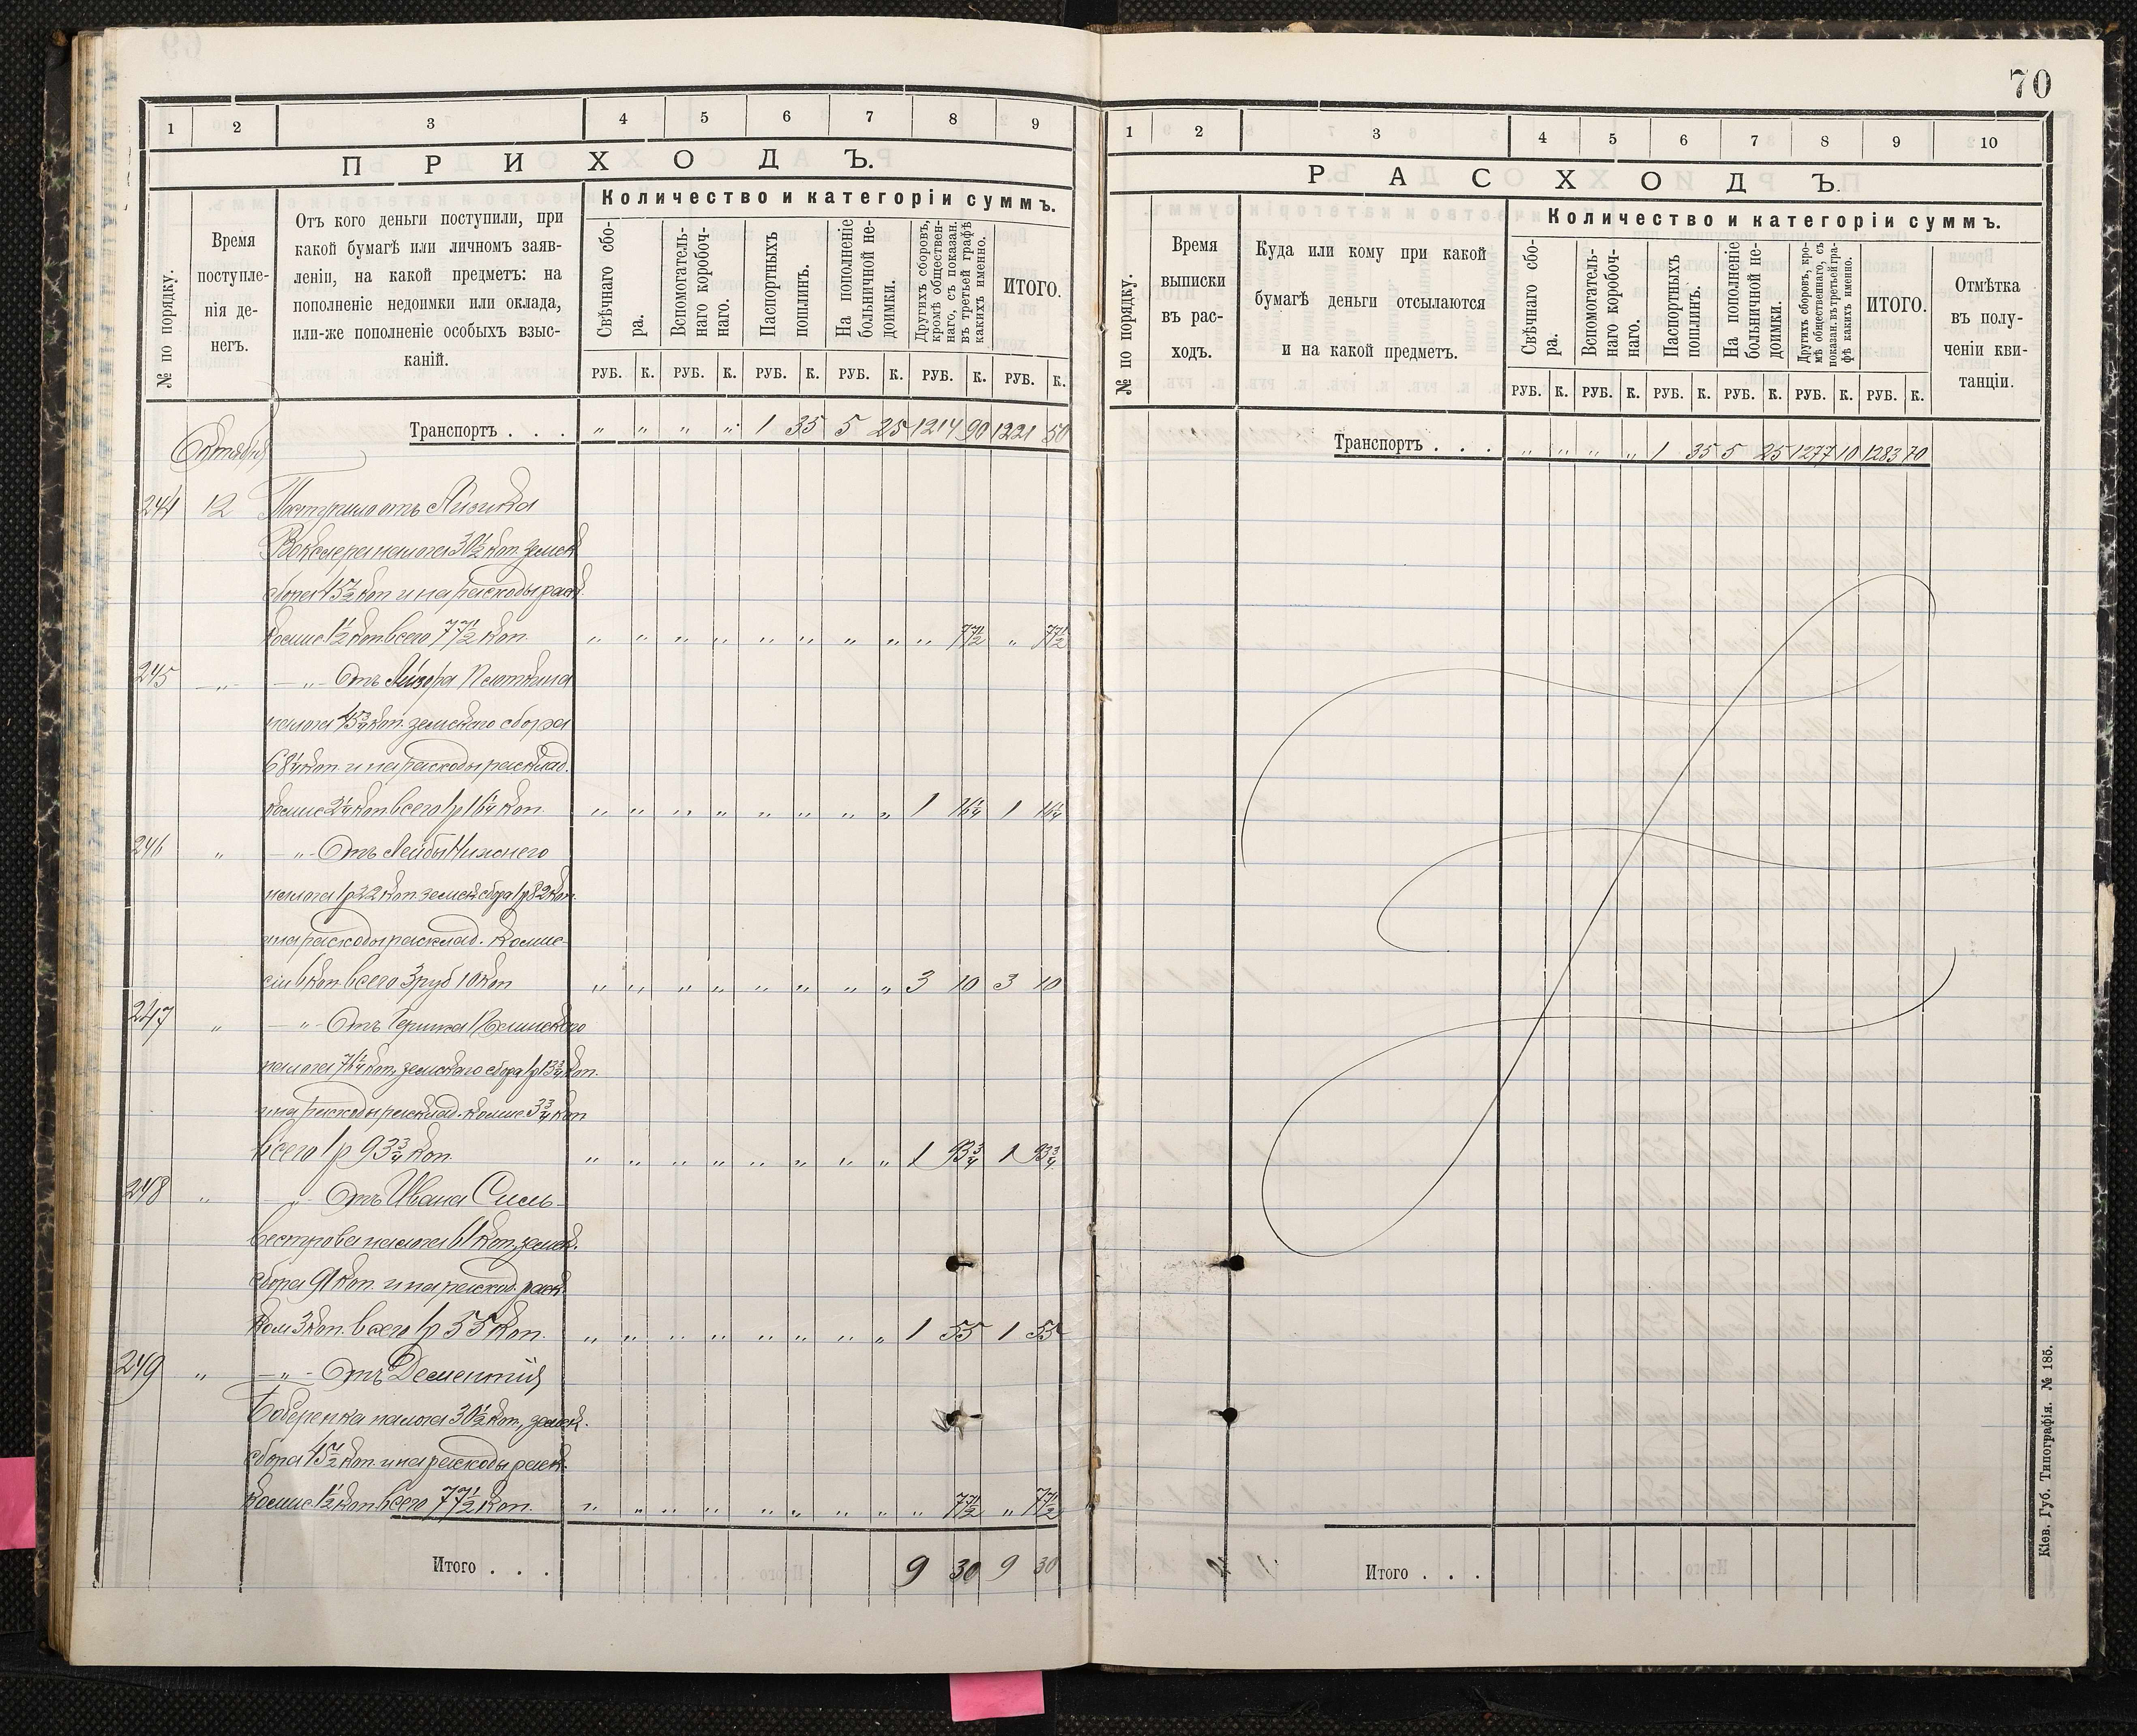 70
1 2 3 4 5 6 7 8 9
ПРИХОДЪ.
№ по порядку.
Время поступле-
нія де-
негъ.
Отъ кого деньги поступили, при
какой бумагѣ или личномъ заяв-
леніи, на какой предметъ: на
пополненіе недоимки или оклада,
или-же пополненіе особыхъ взыс-
каній.
Количество и категоріи суммъ.
Свѣчнаго сбо-
ра.
Вспомогатель-
наго коробоч-
наго.
Паспортныхъ
пошлинъ.
На пополненіе
больничной не-
доимки.
Другихъ сборовъ,
кромѣ обществен-
наго, съ показан.
въ третьей графѣ
какихъ именно.
ИТОГО.
РУБ. К. РУБ. К. РУБ. К. РУБ. К. РУБ. К. РУБ. К.
Транспортъ . . . " " " " 1 35 5 25 1214 90 1221 50
Октября
244 12 Поступило от Айзика
налога 30½ коп. земск
сбора 45½ коп и на расходы раск.
комис 1½ коп всего 77½ коп. " " " " " " " " " 77½ " 77½
245 " " Отъ
налога 45¾ коп. земскаго сбора
68¼ коп. и на расходы расклад.
комис 2¼ коп всего 1 р 16¼ коп. " " " " " " " " 1 16¼ 1 16¼
246 " " Отъ Лейбы Нижнего
налога 1 р 22 коп земск сбора 1 р 82 коп.
и на расходы расклад. комис-
сіи 6 коп всего 3 руб 10 коп " " " " " " " " 3 10 3 10
247 " " Отъ
налога 76¼ коп, земскаго сбора 1 р 13¾ коп.
и на расходы расклад. комис. 3¾ коп
всего 1 р 93¾ коп. " " " " " " " " 1 93¾ 1 93¾
248 " " Отъ Ивана Силь-
вестрова налога 61 коп. земск.
сбора 91 коп. и на расход. раск.
ком 3 коп. всего 1 р 55 коп. " " " " " " " " 1 55 1 55
249 " " Отъ Дементія
налога 30½ коп, земск.
сбора 45½ коп. и на расходы раск.
комис. 1½ коп всего 77½ коп. " " " " " " " " " 77½ " 77½
Итого . . . 9 30 9 30
1 2 3 4 5 6 7 8 9 10
РАСХОДЪ.
№ по порядку.
Время
выписки
въ рас-
ходъ.
Куда или кому при какой
бумагѣ деньги отсылаются
и на какой предметъ.
Количество и категоріи суммъ.
Свѣчнаго сбо-
ра.
Вспомогатель-
наго коробоч-
наго.
Паспортныхъ
пошлинъ.
На пополненіе
больничной не-
доимки.
Другихъ сборовъ, кро-
мѣ общественнаго, съ
показан. въ третьей гра-
фѣ какихъ именно.
ИТОГО.
Отмѣтка
въ полу-
ченіи кви-
танціи.
РУБ. К. РУБ. К. РУБ. К. РУБ. К. РУБ. К. РУБ. К.
Транспортъ . . . " " " " 1 35 5 25 1277 10 1283 70
Итого . . .
Кіев. Губ. Типографія. № 185.